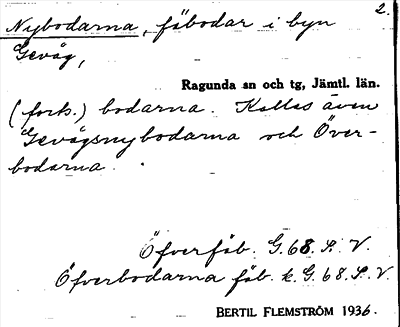 2.
Nybodarna, fäbodar i byn
Gevåg,
Ragunda sn och tg, Jämtl. län.
(forts.) bodarna. Kallas även
Gevågsnybodarna och Över-
bodarna.
Öfverfäb. G.68.S.V.
Öfverbodarna fäb. k.G.68.S.V.
BERTIL FLEMSTRÖM 1936.